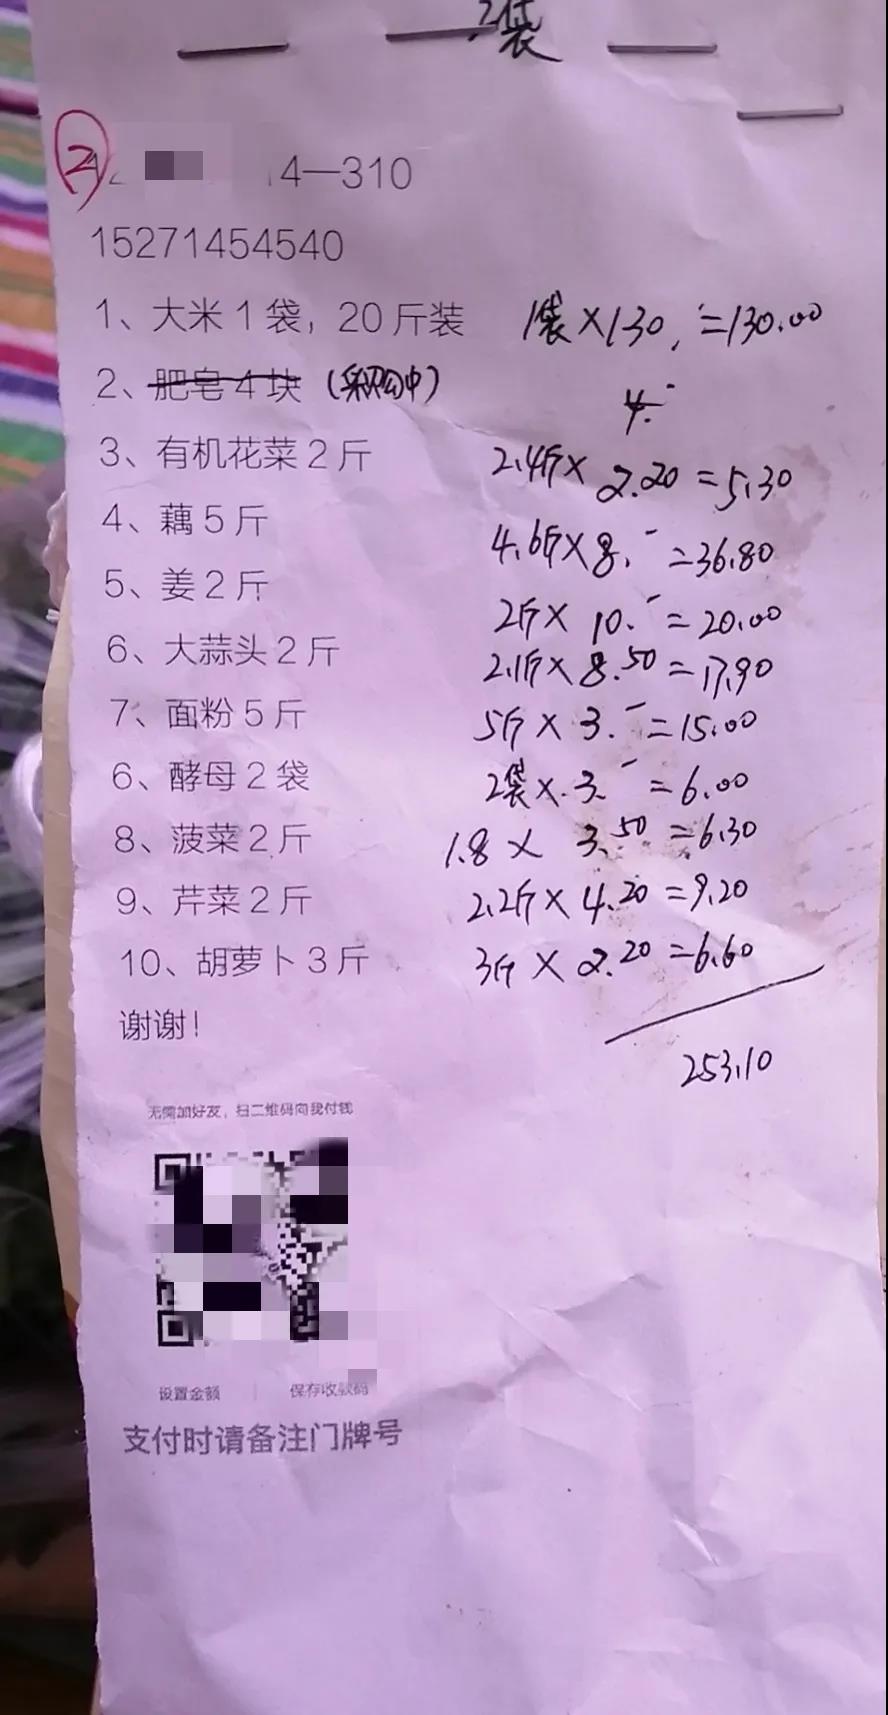 2袋
② 14—310
15271454540
1、大米1袋，20斤装 1袋×130.-=130.00
2、肥皂4块（采购中） 4.-
3、有机花菜2斤 2.4斤×2.20=5.30
4、藕5斤 4.6斤×8.-=36.80
5、姜2斤 2斤×10.-=20.00
6、大蒜头2斤 2.1斤×8.50=17.90
7、面粉5斤 5斤×3.-=15.00
6、酵母2袋 2袋×3.-=6.00
8、菠菜2斤 1.8×3.50=6.30
9、芹菜2斤 2.2斤×4.20=9.20
10、胡萝卜3斤 3斤×2.20=6.60
谢谢！ 253.10
无需加好友，扫二维码向我付钱
设置金额 | 保存收款码
支付时请备注门牌号